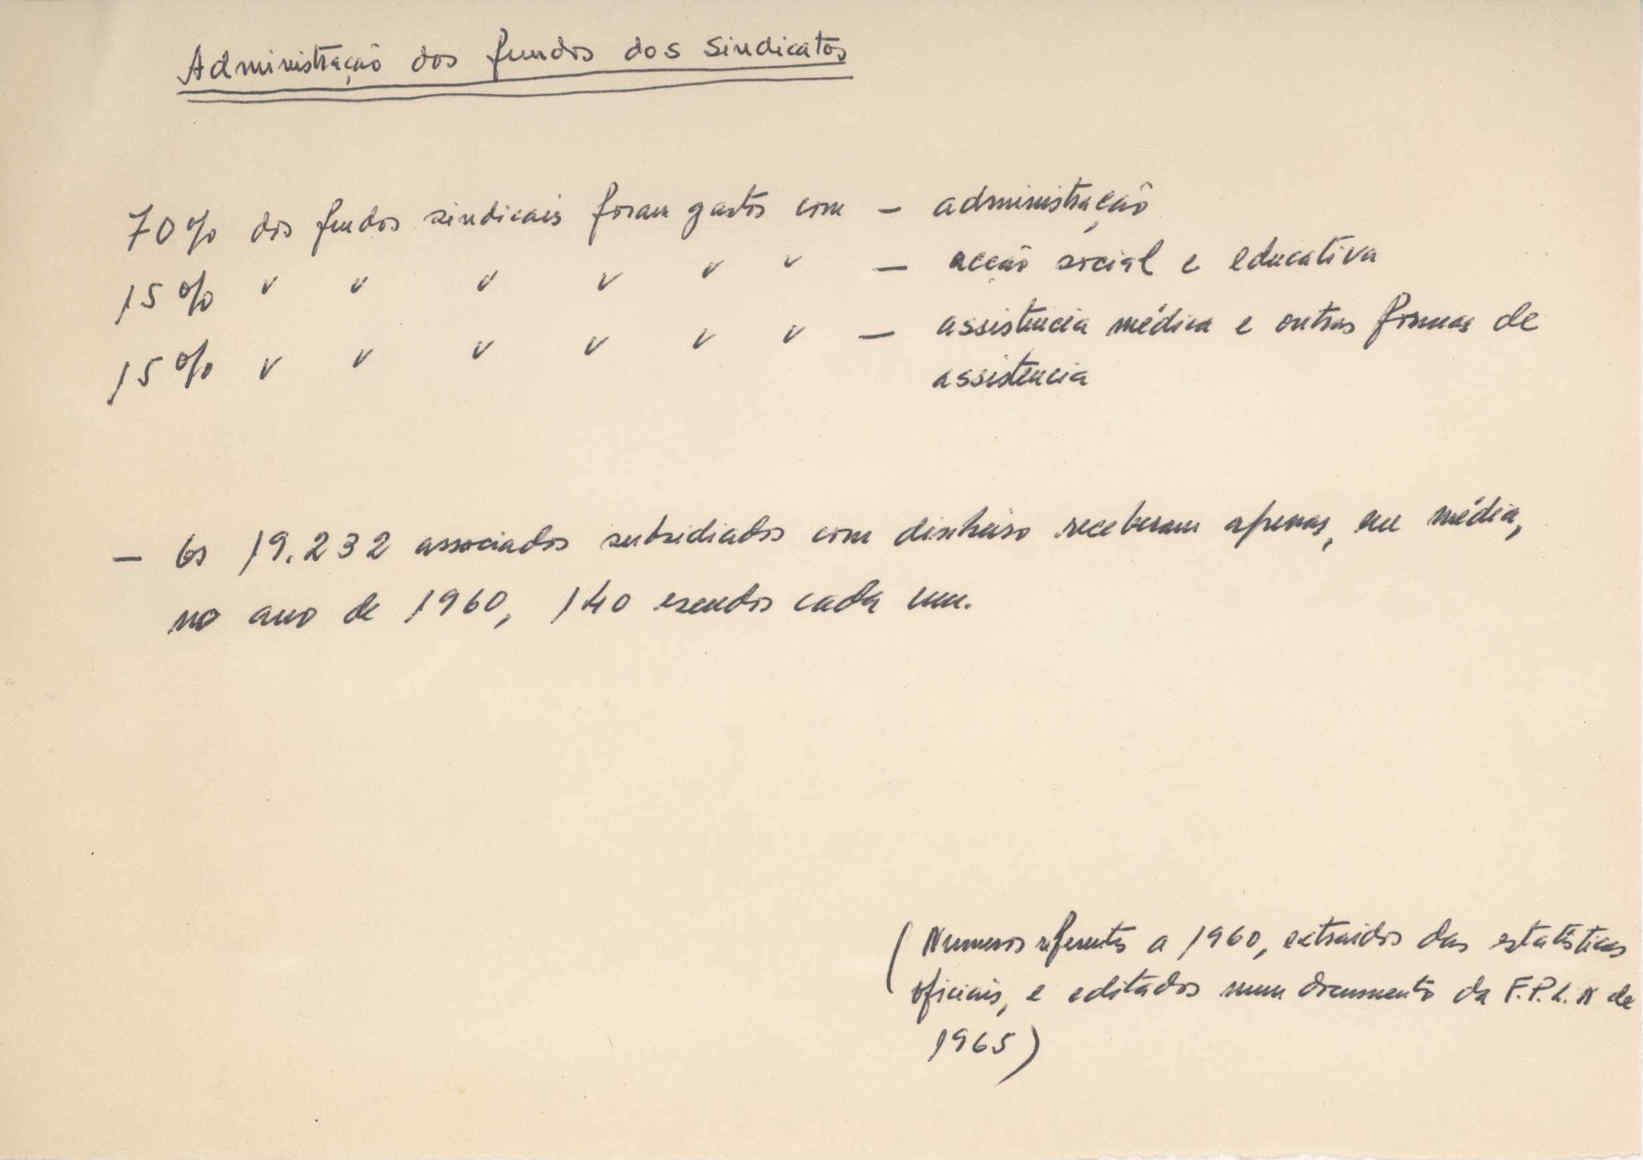 Administração dos fundos dos sindicatos
70% dos fundos sindicais foram gastos com – administração
15% " " " " " " – acção social e educativa
15% " " " " " " – assistencia médica e outras formas de
assistencia
– Os 19.232 associados subsidiados com dinheiro receberam apenas, em média,
no ano de 1960, 140 escudos cada um.
(Numeros referentes a 1960, extraidos das estatísticas
oficiais, e editados num documento da F.P.L.N de
1965)